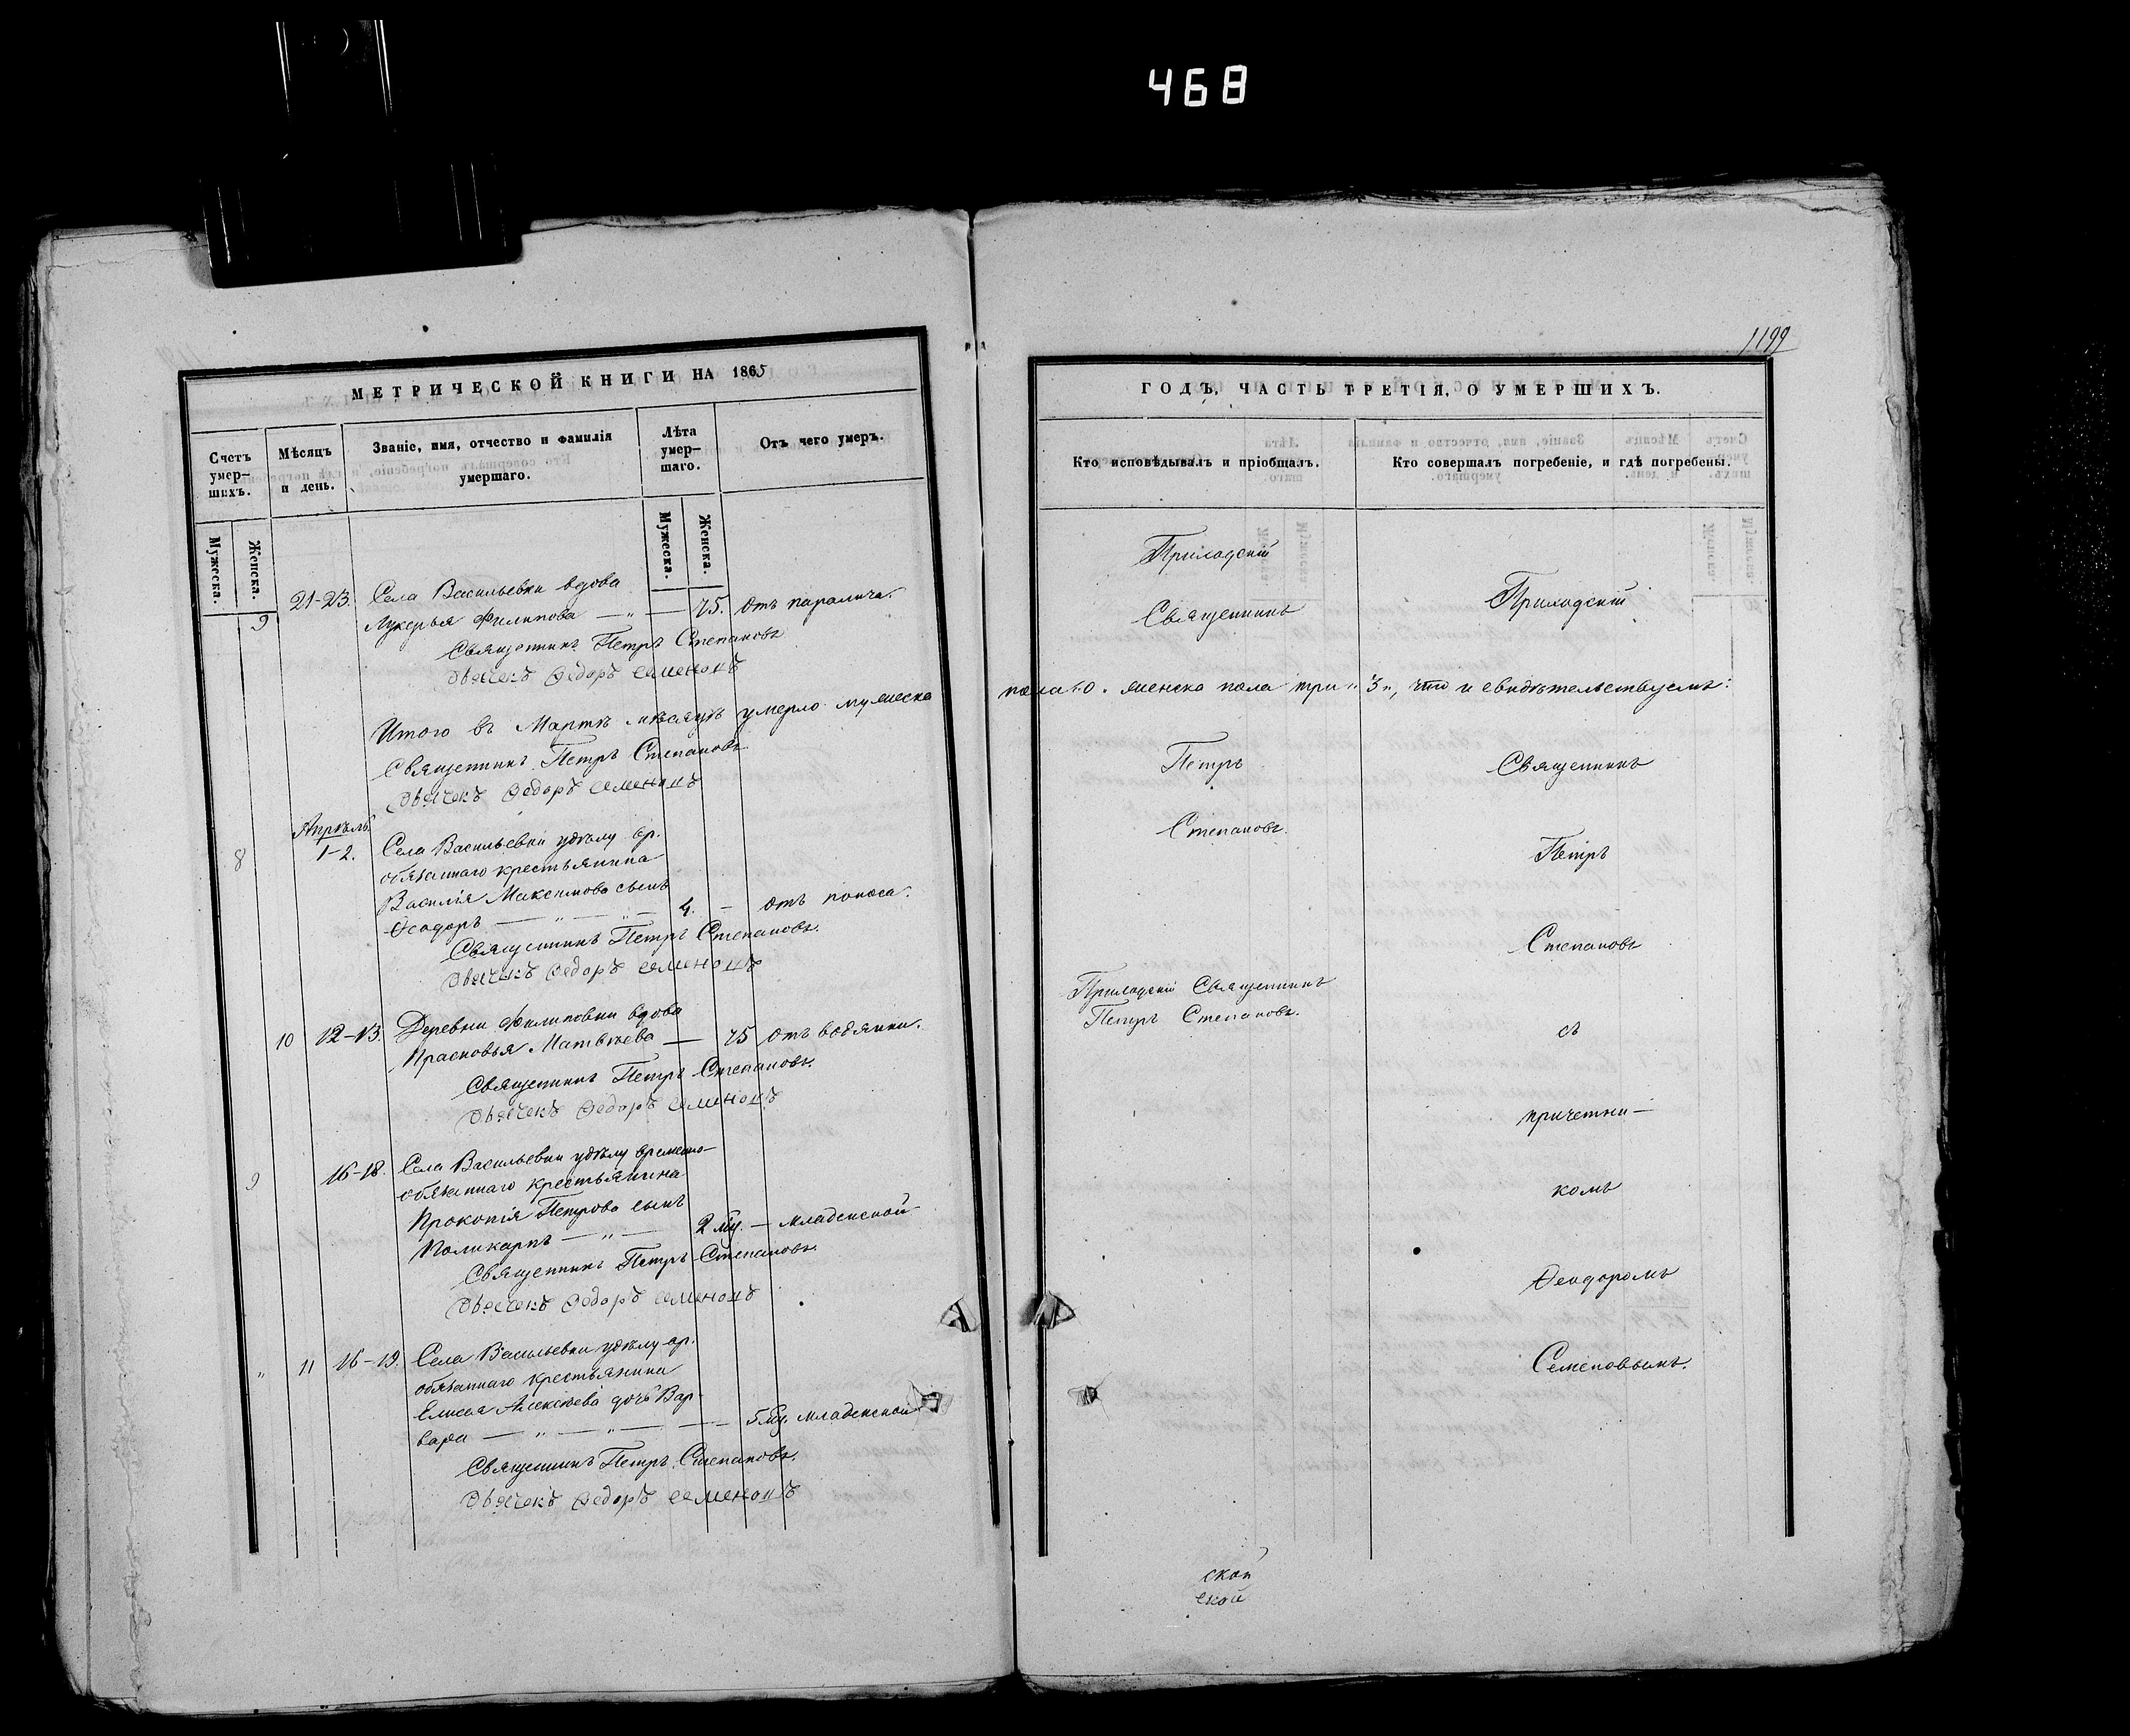 468
1199
МЕТРИЧЕСКОЙ КНИГИ НА 1865
Счетъ умершихъ.
Мѣсяцъ и день.
Званіе, имя, отчество и фамилія умершаго.
Лѣта умершаго.
Отъ чего умеръ.
Мужеска.
Женска.
Мужеска.
Женска.
9 21-23. Села Васильевки вдова
Лукерья Филипова — „ — 75. отъ паралича.
Священникъ Петръ Степановъ
Дьячекъ Федоръ Семеновъ
Итого въ Мартѣ мѣсяцѣ умерло мужеска
Священникъ Петръ Степановъ
Дьячекъ Федоръ Семеновъ
Апрѣль.
8 1-2. Села Васильевки удѣлу вр.
обязаннаго крестьянина
Василія Максимова сынъ
Ѳеодоръ — „ — „ — 4. — отъ поноса.
Священникъ Петръ Степановъ.
Дьячекъ Федоръ Семеновъ
10 12-13. Деревни Филиповки вдова
Прасковья Матвѣева — 75 отъ водянки.
Священникъ Петръ Степановъ.
Дьячекъ Федоръ Семеновъ
9 16-18. Села Васильевки удѣлу временно-
обязаннаго крестьянина
Прокопія Петрова сынъ
Поликарпъ — „ — 2 мц. — младенской
Священникъ Петръ Степановъ.
Дьячекъ Федоръ Семеновъ
„ 11 16-19. Села Васильевки удѣлу вр.
обязаннаго крестьянина
Елисея Алексѣева дочь Вар-
вара — „ — „ — — 5 мц. младенской
Священникъ Петръ Степановъ.
Дьячекъ Федоръ Семеновъ
ГОДЪ, ЧАСТЬ ТРЕТІЯ, О УМЕРШИХЪ.
Кто исповѣдывалъ и пріобщалъ.
Кто совершалъ погребеніе, и гдѣ погребены.
Приходскій
Священникъ
пола 0. женска пола три „3„, что и свидѣтельствуемъ:
Петръ
Степановъ.
Приходскій Священникъ
Петръ Степановъ.
Приходскій
Священникъ
Петръ
Степановъ
съ
причетни-
комъ
Ѳеодоромъ
Семеновымъ.
ской
ской